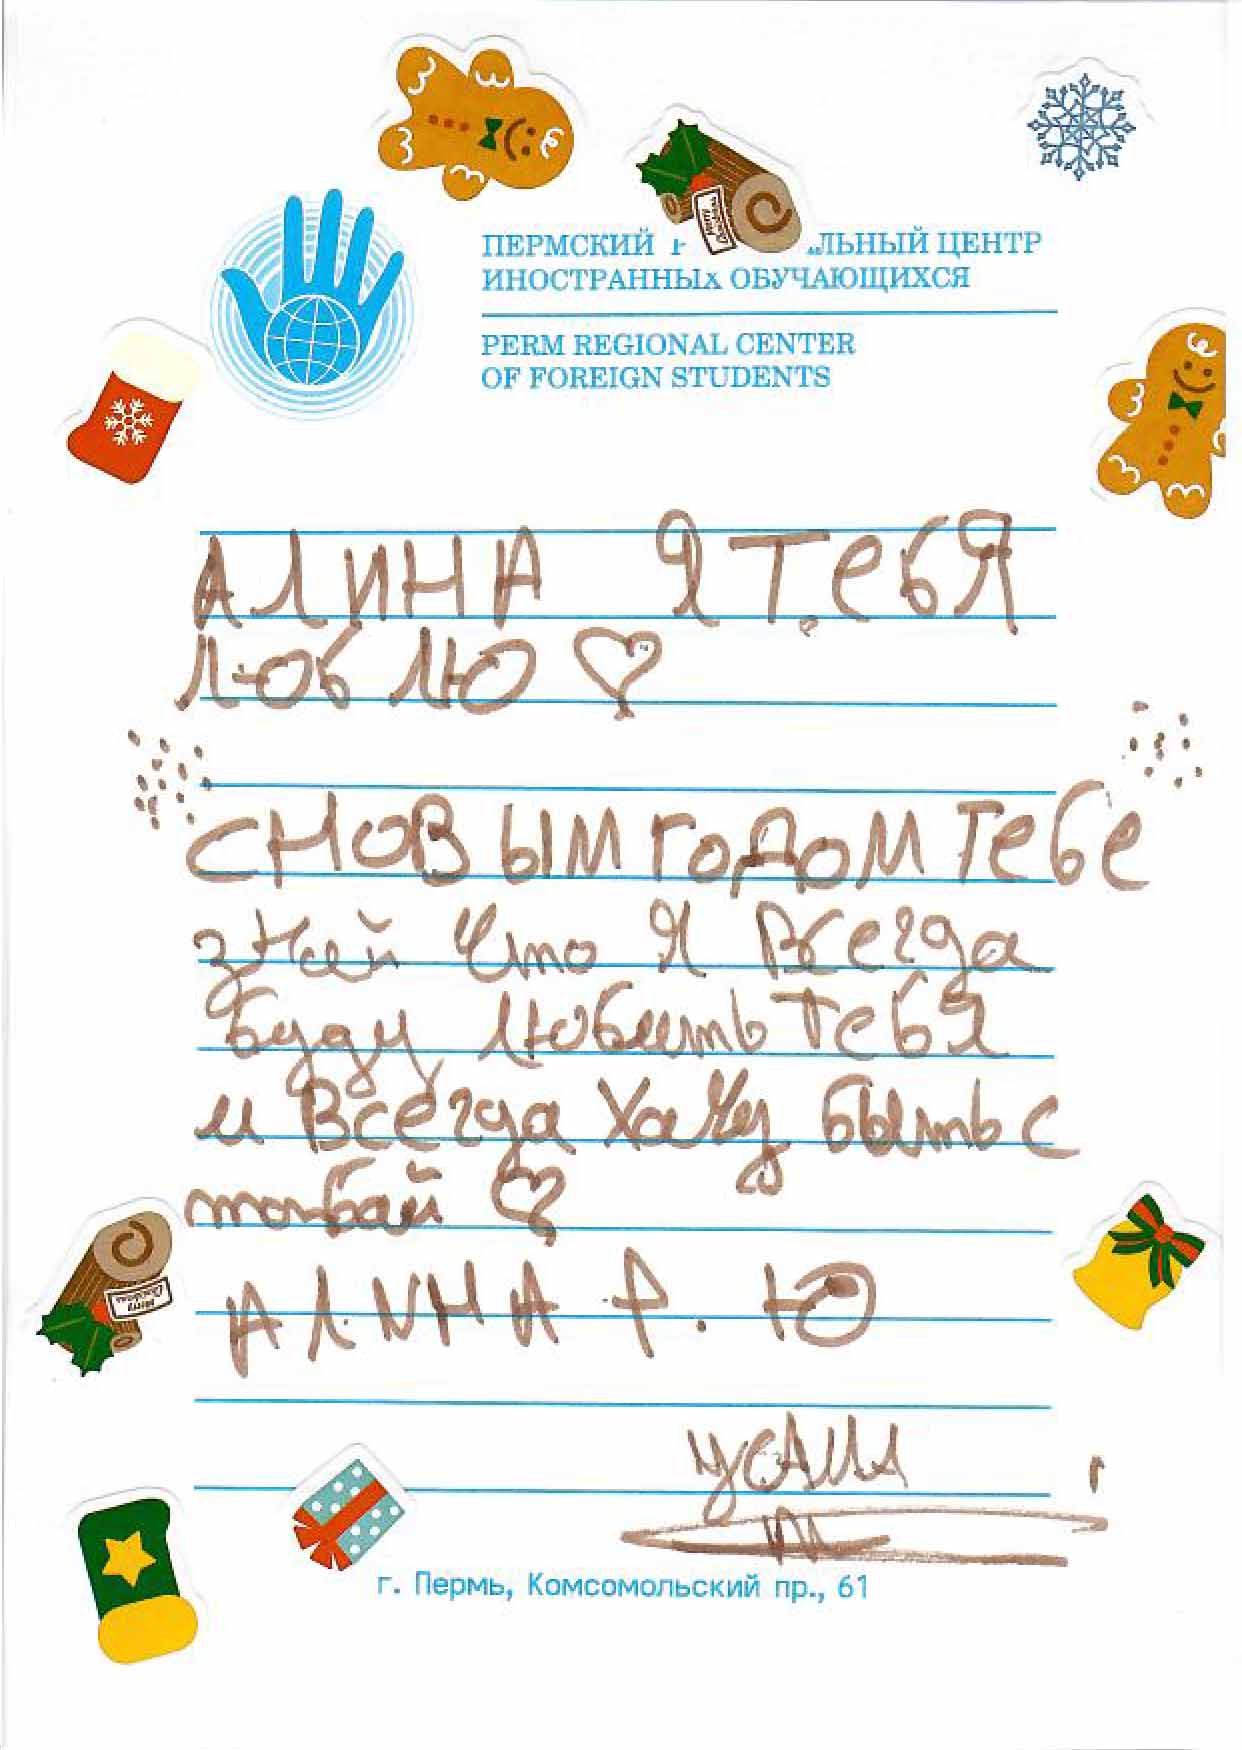 ПЕРМСКИЙ ЛЬНЫЙ ЦЕНТР
ИНОСТРАННЫХ ОБУЧАЮЩИХСЯ
PERM REGIONAL CENTER
OF FOREIGN STUDENTS
АЛИНА Я ТЕБЯ
ЛЮБЛЮ ♡
СНОВЫМ ГОДОМ ТЕБЕ
знай что я всегда
буду любить тебя
и всегда хачу быть с
тобай ♡
АЛИНА Р. Ю
г. Пермь, Комсомольский пр., 61